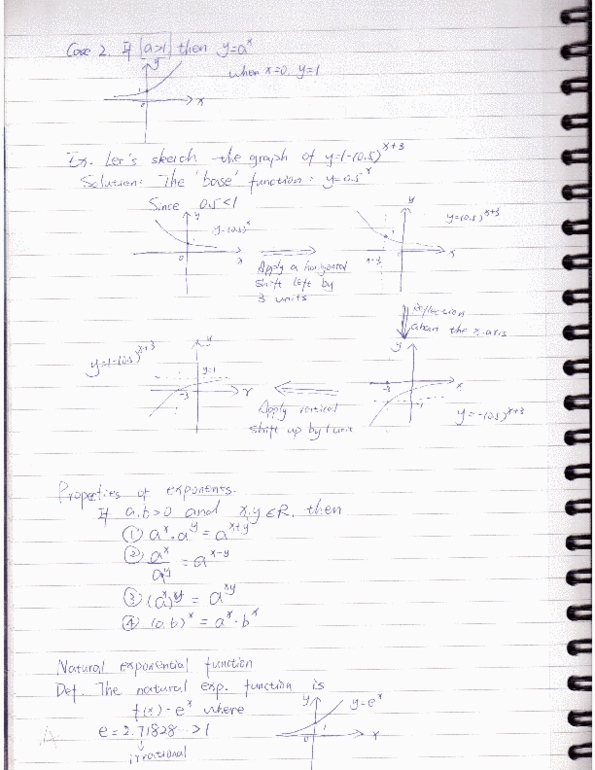 Case 2. If a>1 then y=a^x
when x=0, y=1
y
1
0
x
Ex. Let's sketch the graph of y=1-(0.5)^{x+3}
Solution: The 'base' function: y=0.5^x
Since 0.5<1
y
y=(0.5)^x
0
x
Apply a horizontal
shift left by
3 units
y
y=(0.5)^{x+3}
x=-3
1
0
x
Reflection
about the x-axis
y
x
-3
-1
y=-(0.5)^{x+3}
Apply vertical
shift up by 1 unit
y=1-(0.5)^{x+3}
y
y=1
-3
x
Properties of exponents.
If a,b>0 and x,y∈R, then
① a^x·a^y = a^{x+y}
② a^x/a^y = a^{x-y}
③ (a^x)^y = a^{xy}
④ (a·b)^x = a^x·b^x
Natural exponential function
Def. The natural exp. function is
f(x)=e^x where
e=2.71828... >1
irrational
y
y=e^x
1
0
x